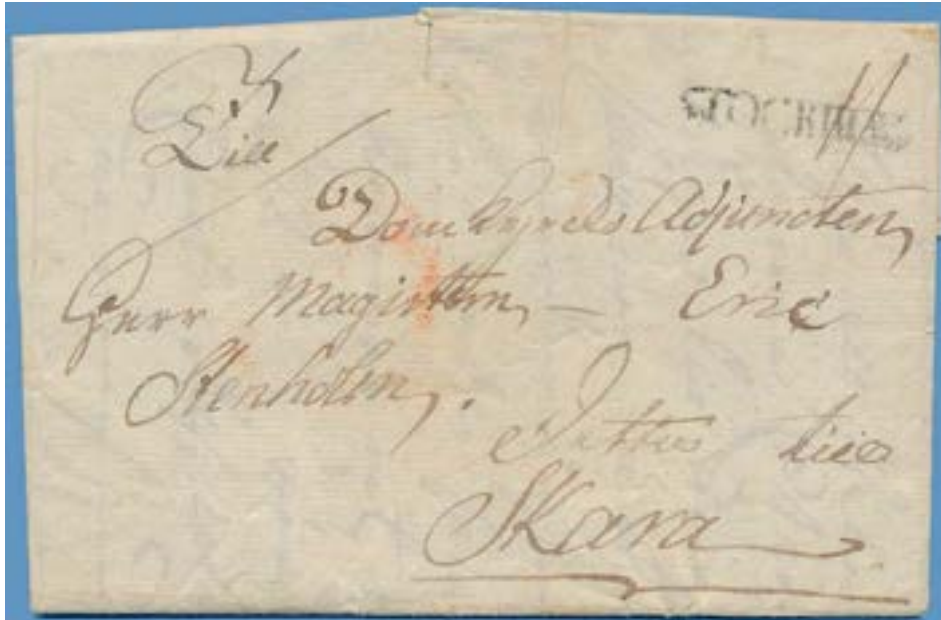 STOCKHOLM
Till
Domkyrcko Adjuncten,
Herr Magistern, — Eric
Stenholm,.
Skara